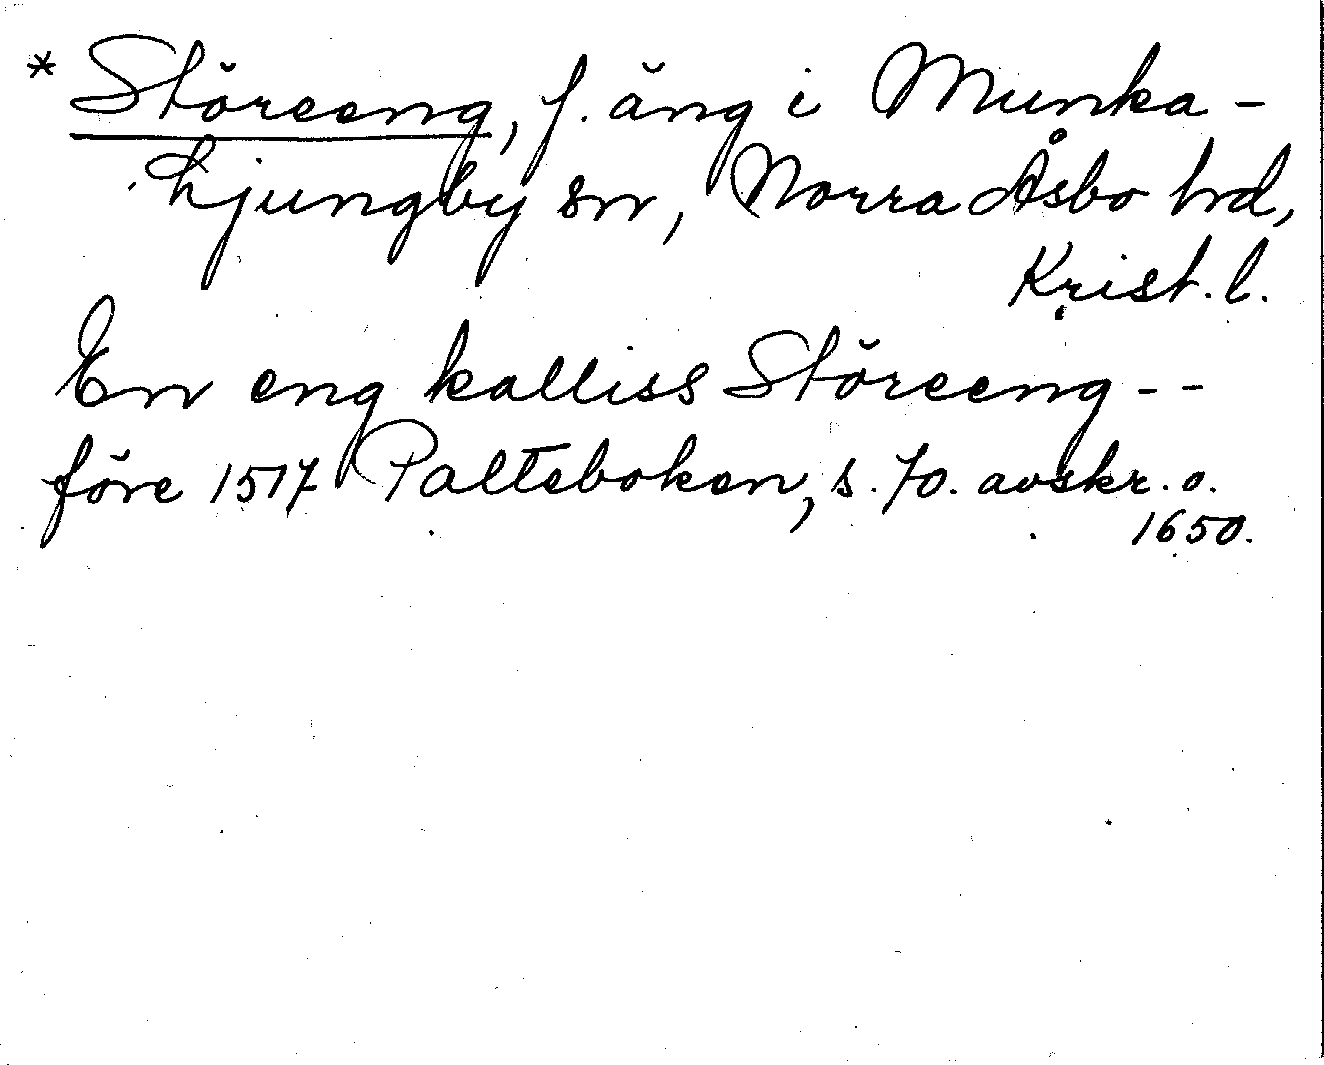 * Störeeng, f. äng i Munka-
Ljungby sn, Norra Åsbo hd,
Krist. l.
En eng kalliss Störeeng--
före 1517 Palteboken, s. 70. avskr. o.
1650.